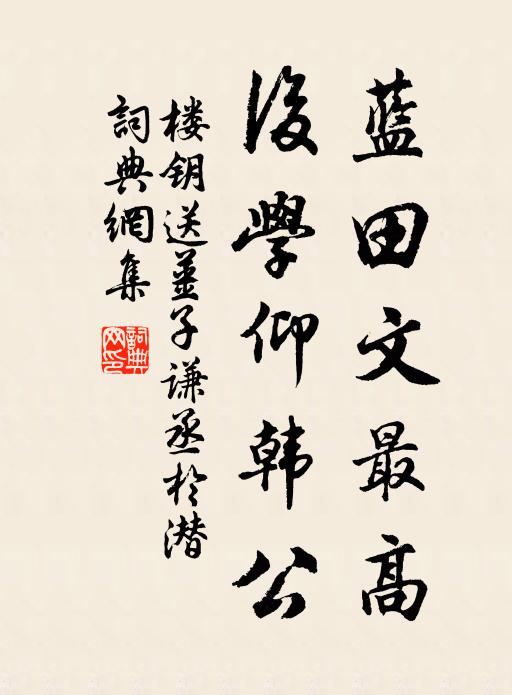 藍田文最高
後學仰韩公
楼钥送姜子谦丞於潜
詞典網集
詞典網印